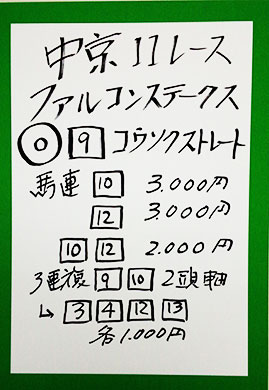 中京11レース
ファルコンステークス
◎ 9 コウソクストレート
馬連 10 3.000円
12 3.000円
10 12 2.000円
3連複 9 10 2頭軸
↳ 3 4 12 13
各1.000円